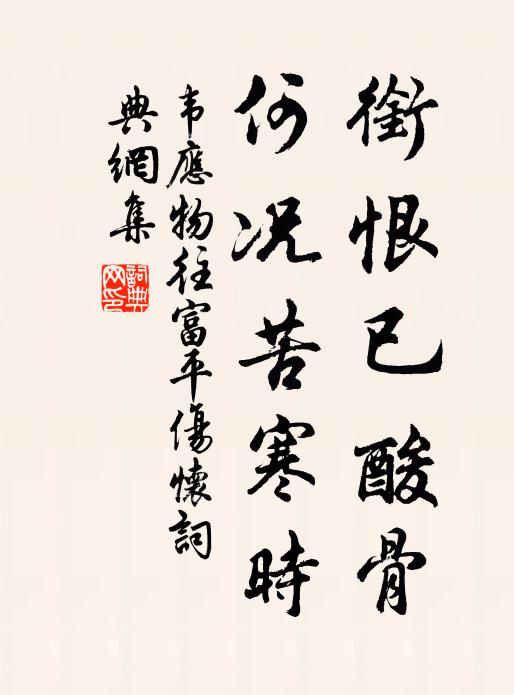 銜恨已酸骨
何况苦寒時
韦應物往富平傷懷詞
典網集
詞典
网印